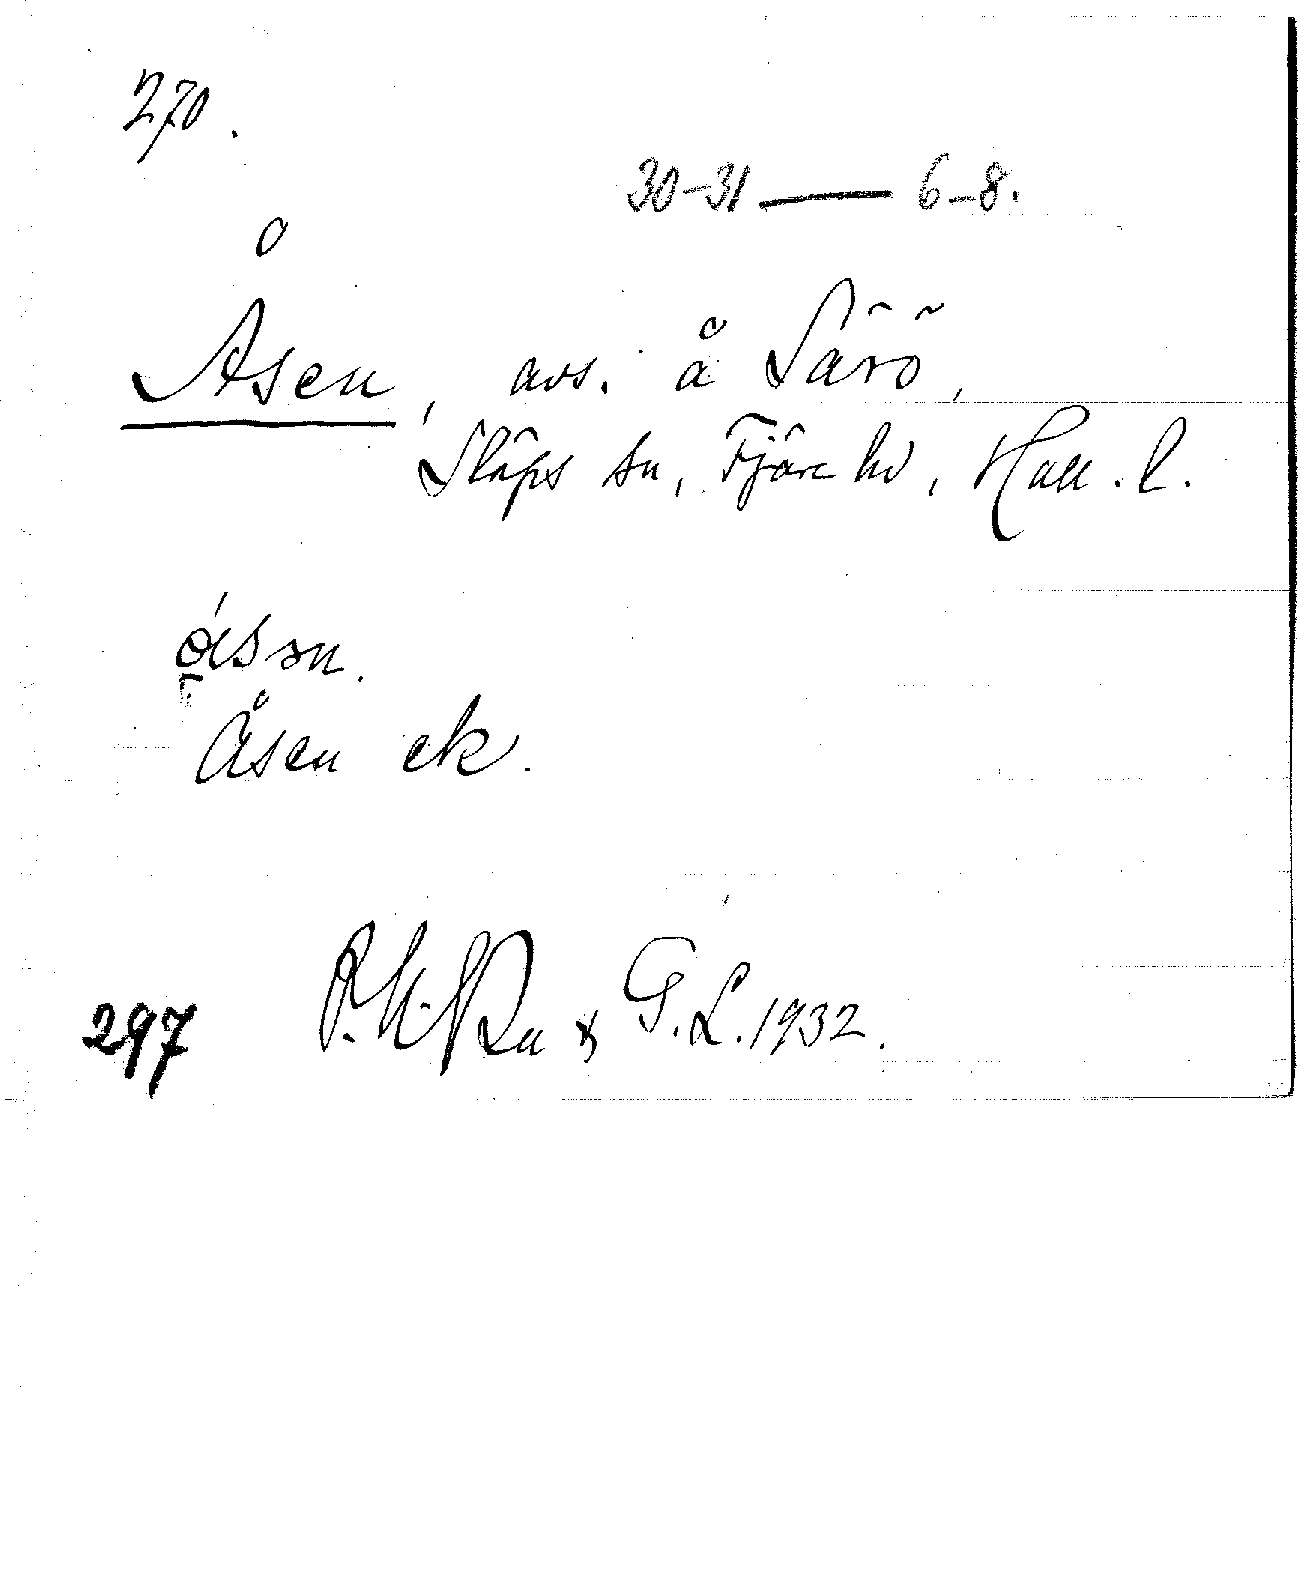 270.
30-31 — 6-8.
Åsen, avs. å Särö,
Släps sn, Fjäre hd, Hall. l.
Åsen ek.
297 G.L. 1932.